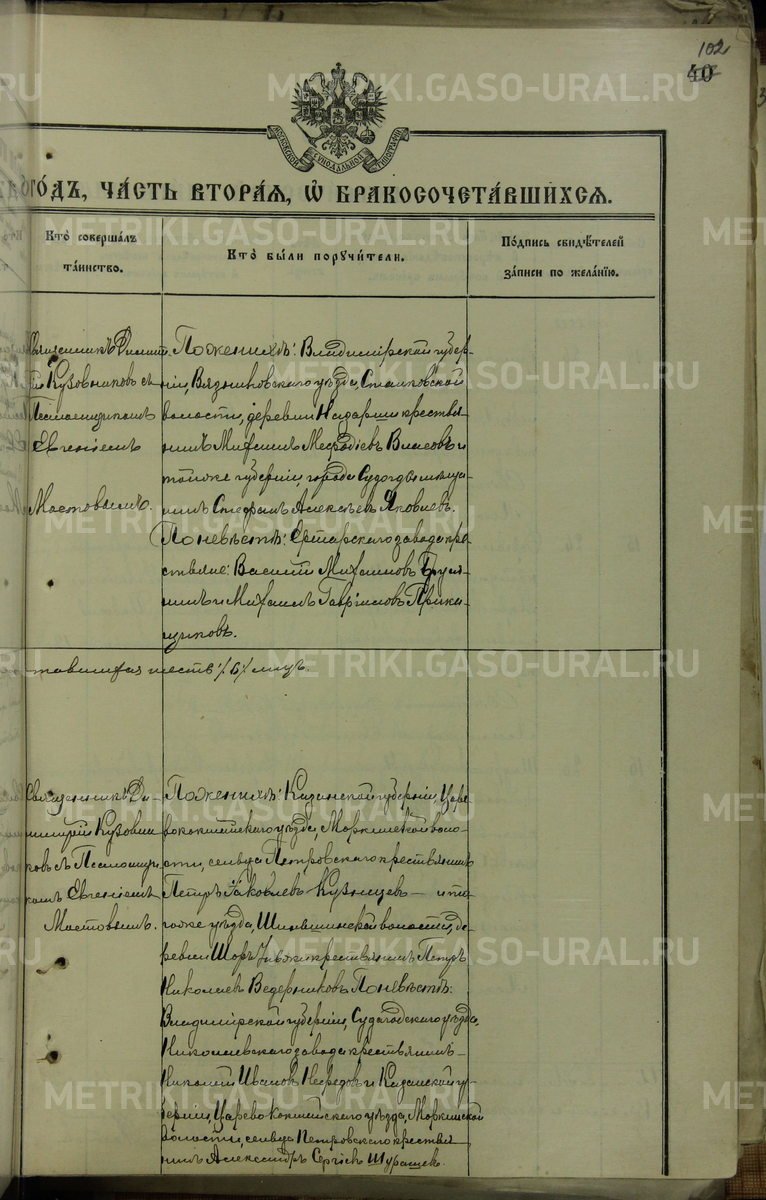 102
40
МОСКОВСКОЙ СУНОДАЛЬНОЙ ТИПОГРАФІИ
ГО́ДЪ, ЧА́СТЬ ВТОРА́Я, Ѡ БРАКОСОЧЕТА́ВШИХСЯ.
Кто̀ соверша́лъ
та́инство.
Кто̀ бы́ли поручи́тели.
По́дпись свидѣ́телей
за́писи по жела́нію.
Священникъ Димит-
рій Кузовниковъ съ
Псаломщикомъ
Евгеніемъ
Мостовымъ.
По женихѣ: Владимірской губер-
ніи, Вязниковскаго уѣзда, Станковской
волости, деревни крестья-
нинъ Михаилъ Власовъ и
той же губерніи, города Судогды мѣща-
нинъ Стефанъ Алексѣевъ Яковлевъ.
По невѣстѣ: Ертарскаго завода кре-
стьяне: Василій Михаиловъ
и Михаилъ Гавріиловъ Прика-
щиковъ.
шесть /6/ лицъ.
Священникъ Ди-
митрій Кузовни-
ковъ съ Псаломщи-
комъ Евгеніемъ
Мостовымъ.
По женихѣ: Казанской губерніи, Царе-
вококшайскаго уѣзда, Моркинской воло-
сти, сельца Петровскаго крестьянинъ
Петръ Яковлевъ Кузнецовъ и то-
го же уѣзда, Шиньшинской волости, де-
ревни крестьянинъ Петръ
Николаевъ Ведерниковъ. По невѣстѣ:
Владимірской губерніи, Судогодскаго уѣзда,
Николаевскаго завода крестьянинъ
Николай Ивановъ и Казанской гу-
берніи, Царевококшайскаго уѣзда, Моркинской
волости, сельца Петровскаго крестья-
нинъ Александръ Сергіевъ
METRIKI.GASO-URAL.RU